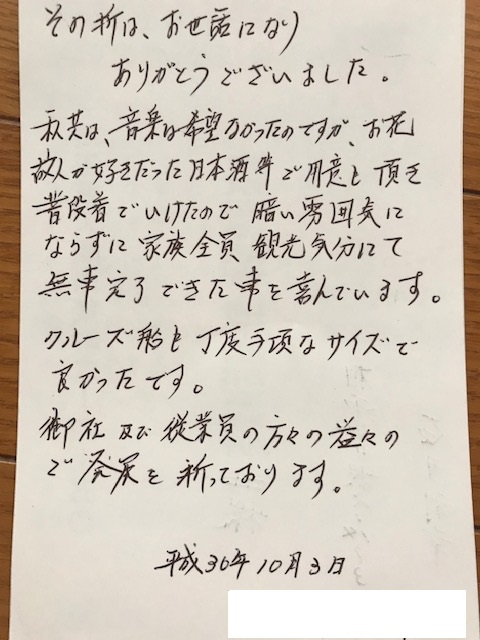 その折は、お世話になり
ありがとうございました。
私共は、音楽は希望なかったのですが、お花
故人が好きだった日本酒等ご用意も頂き
普段着でいけたので 暗い雰囲気に
ならずに 家族全員 観光気分にて
無事完了できた事を喜んでいます。
クルーズ船も丁度手頃なサイズで
良かったです。
御社 及び 従業員の方々の益々の
ご発展を祈っております。
平成30年10月3日